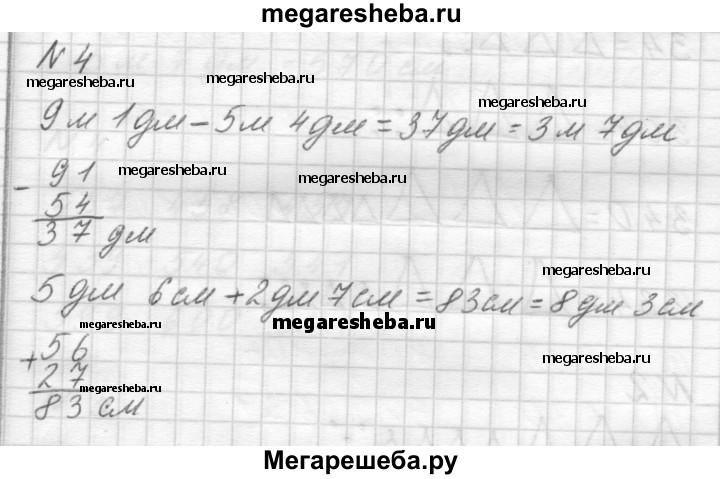 megaresheba.ru
№ 4
megaresheba.ru megaresheba.ru megaresheba.ru
9 м 1 дм – 5 м 4 дм = 37 дм = 3 м 7 дм
megaresheba.ru megaresheba.ru
- 91
54
37 дм
megaresheba.ru
5 дм 6 см + 2 дм 7 см = 83 см = 8 дм 3 см
megaresheba.ru megaresheba.ru
+ 56
27
megaresheba.ru megaresheba.ru
83 см
Мегарешеба.ру